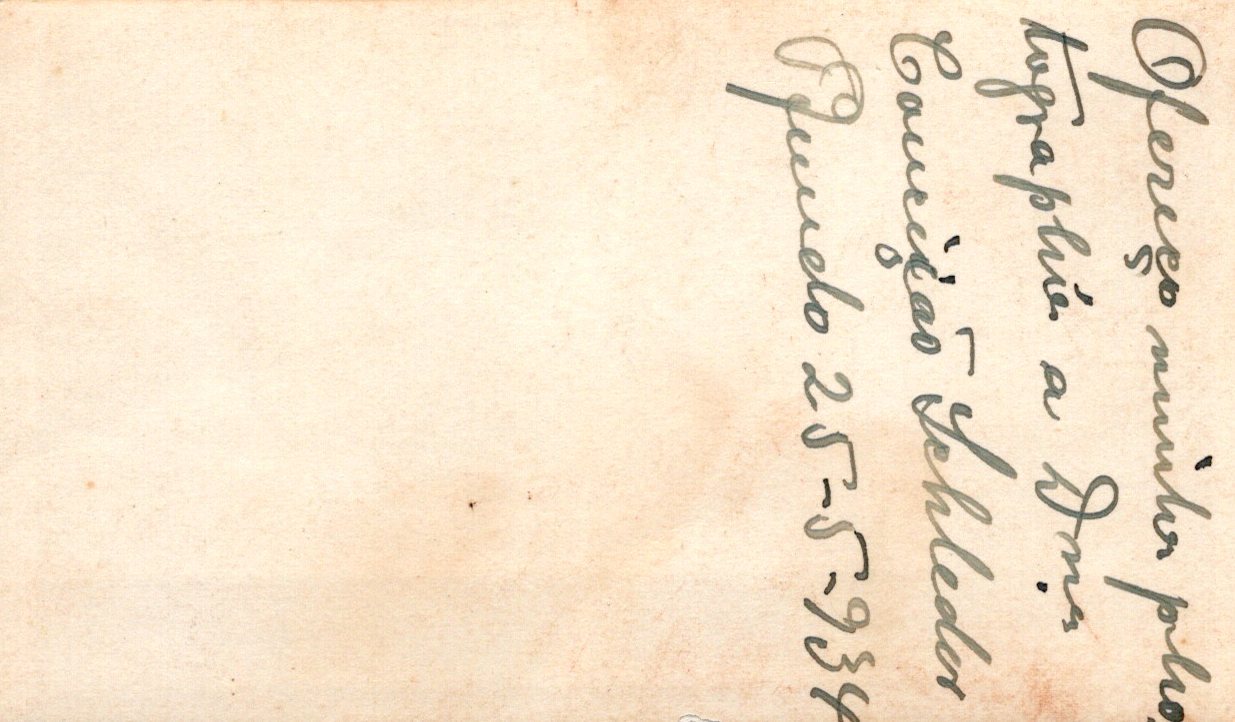 Ofereço minha pho
tographia a Dna
Conceição Schleder
25-5-934